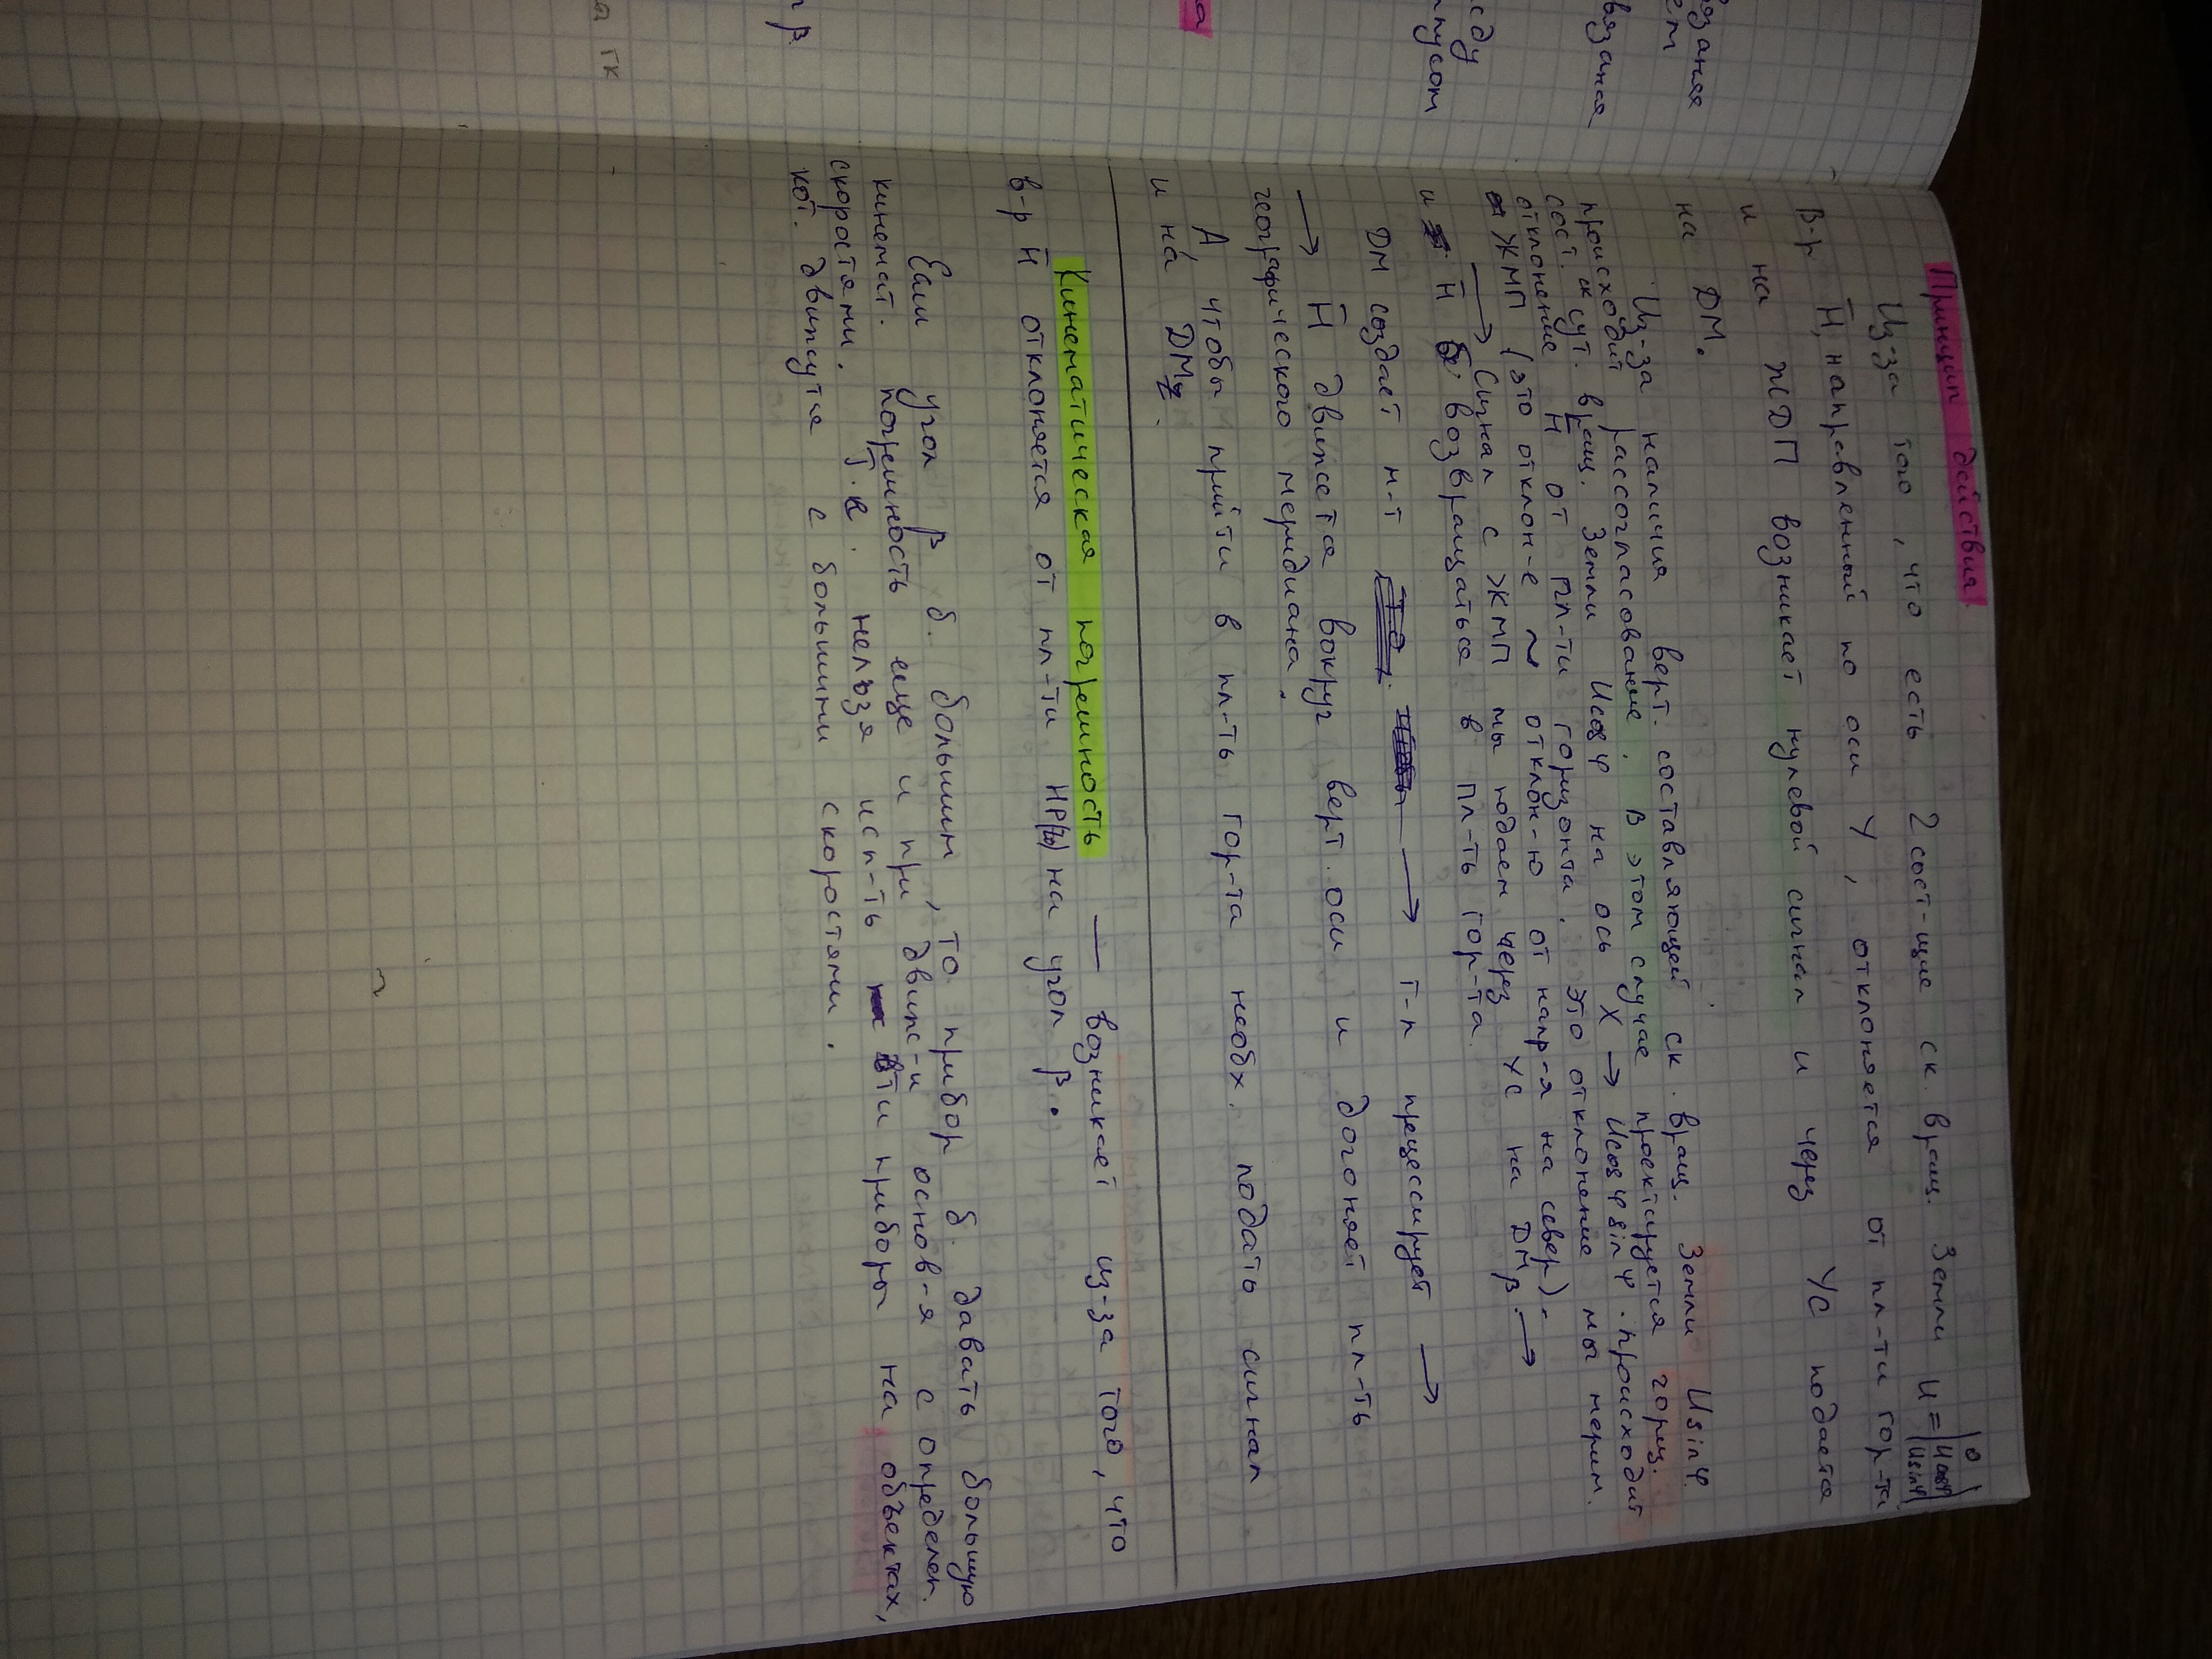 язаная
ет
вязаная
еду
пусом
а
р β
а гк
Принцип действия
Из-за того, что есть 2 сост-щие ск. вращ. Земли U = |0 Ucosφ Usinφ|
В-р H̄, направленный по оси Y, отклоняется от пл-ти гор-та
и на ЖДП возникает нулевой сигнал и через УС подается
на ДМ.
Из-за наличия верт. составляющей ск. вращ. Земли Usinφ
происходит рассогласование. В этом случае проектируется гориз.
сост. ск сут. вращ. Земли Ucosφ на ось X → Ucosφ sinφ. происходит
отклонение H̄ от пл-ти горизонта. Это отклонение мы мерим.
ЖМП (это отклон-е ~ отклон-ю от напр-я на север).
→ Сигнал с ЖМП мы подаем через УС на ДМβ →
и H̄ б. возвращаться в пл-ть гор-та.
ДМ создает м-т → г-п прецессирует →
→ H̄ движется вокруг верт. оси и догоняет пл-ть
географического меридиана.
А чтобы прийти в пл-ть гор-та необх. подать сигнал
и на ДМz.
Кинематическая погрешность — возникает из-за того, что
в-р H̄ отклоняется от пл-ти на угол β.
Если угол β б. большим, то прибор б. давать большую
кинемат. погрешность еще и при движ-и основ-я с определен.
скоростями. Т.к. нельзя исп-ть эти приборы на объектах,
кот. движутся с большими скоростями.